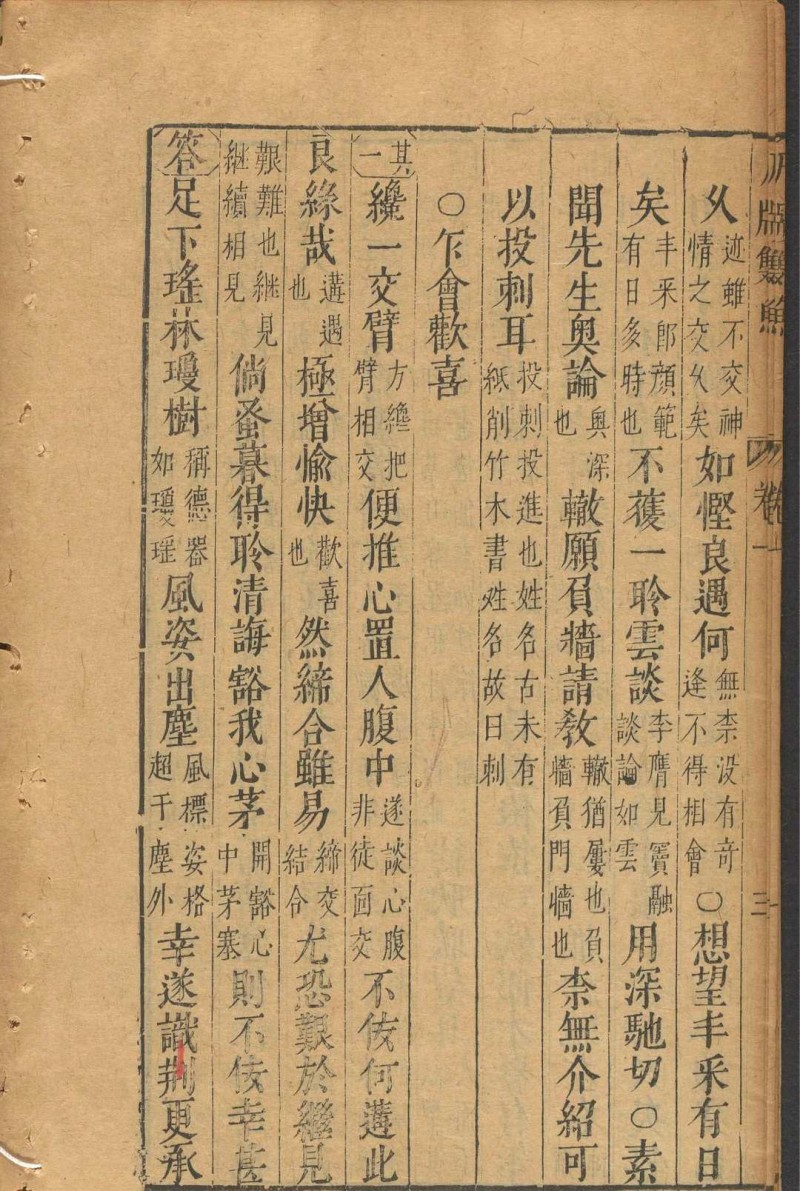 尺牘雙魚 卷一 三
久迹雖不交神情之交久矣如慳良遇何無柰没有竒逢不得相會○想望丰采有日
矣丰采郎顔範有日多時也不獲一聆雲談李膺見竇融談論如雲用深馳切○素
聞先生奥論奥深也轍願負牆請教轍猶屢也負牆負門牆也柰無介紹可
以投刺耳投刺投進也姓名古未有紙削竹木書姓名故曰刺
○乍會歡喜
其一纔一交臂方纔把臂相交便推心置人腹中遂談心腹非徒面交不佞何遘此
良緣哉遘遇也極增愉快歡喜也然締合雖易締交結合尤恐艱於繼見
艱難也継見継續相見倘蚤暮得聆清誨豁我心茅開豁心中茅塞則不佞幸甚
答足下瑤林瓊樹稱德器如瓊瑶風姿出塵風標姿格超于塵外幸遂識荆更承